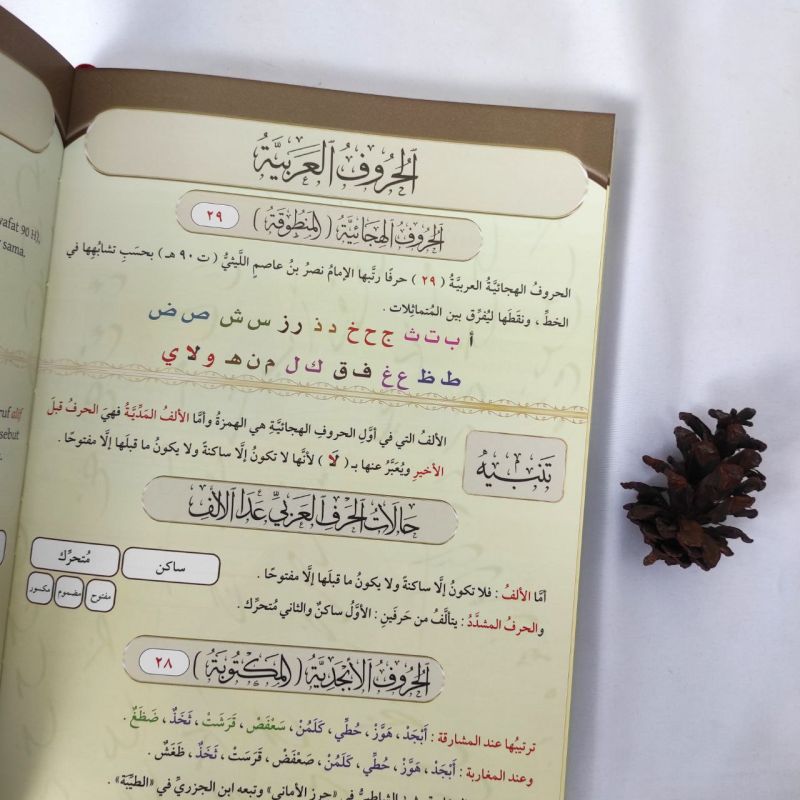 wafat 90 H),
sama.
ruf alif
sebut
الحُرُوفُ العَرَبِيَّةُ
الحُرُوفُ الهِجَائِيَّةُ (المَنْطُوقَةُ) ٢٩
الحروفُ الهجائيَّةُ العربيَّةُ ( ٢٩ ) حرفًا رتَّبها الإمامُ نصرُ بنُ عاصمٍ اللَّيثيُّ ( ت ٩٠ هـ ) بحسَبِ تشابُهِها في
الخطِّ ، ونقَطَها ليُفرِّق بين المُتماثِلات .
أ ب ت ث ج ح خ د ذ ر ز س ش ص ض
ط ظ ع غ ف ق ك ل م ن هـ و لا ي
تَنبِيه
الألفُ التي في أوَّلِ الحروفِ الهجائيَّةِ هي الهمزةُ وأمَّا الألفُ المَدِّيَّةُ فهيَ الحرفُ قبلَ
الأخيرِ ويُعَبَّرُ عنها بـ ( لَا ) لأنَّها لا تكونُ إلَّا ساكنةً ولا يكونُ ما قبلَها إلَّا مفتوحًا .
حَالَاتُ الحَرْفِ العَرَبِيِّ عَدَا الأَلِفَ
ساكن
مُتحرِّك
مفتوح
مضموم
مكسور
أمَّا الألفُ : فلا تكونُ إلَّا ساكنةً ولا يكونُ ما قبلَها إلَّا مفتوحًا .
والحرفُ المشدَّدُ : يتألَّفُ من حَرفَينِ : الأوَّلُ ساكنٌ والثاني مُتحرِّك .
الحُرُوفُ الأَبْجَدِيَّةُ (المَكْتُوبَةُ) ٢٨
ترتيبُها عند المشارقة : أَبْجَدْ ، هَوَّزْ ، حُطِّي ، كَلَمُنْ ، سَعْفَصْ ، قَرَشَتْ ، ثَخَذٌ ، ضَظَغٌ .
وعند المغاربة : أَبْجَدْ ، هَوَّزْ ، حُطِّي ، كَلَمُنْ ، صَعْفَضْ ، قَرَسَتْ ، ثَخَذٌ ، ظَغَشٌ .
الشاطبيُّ في «حرز الأماني» وتبعه ابن الجزريِّ في «الطيِّبة» .